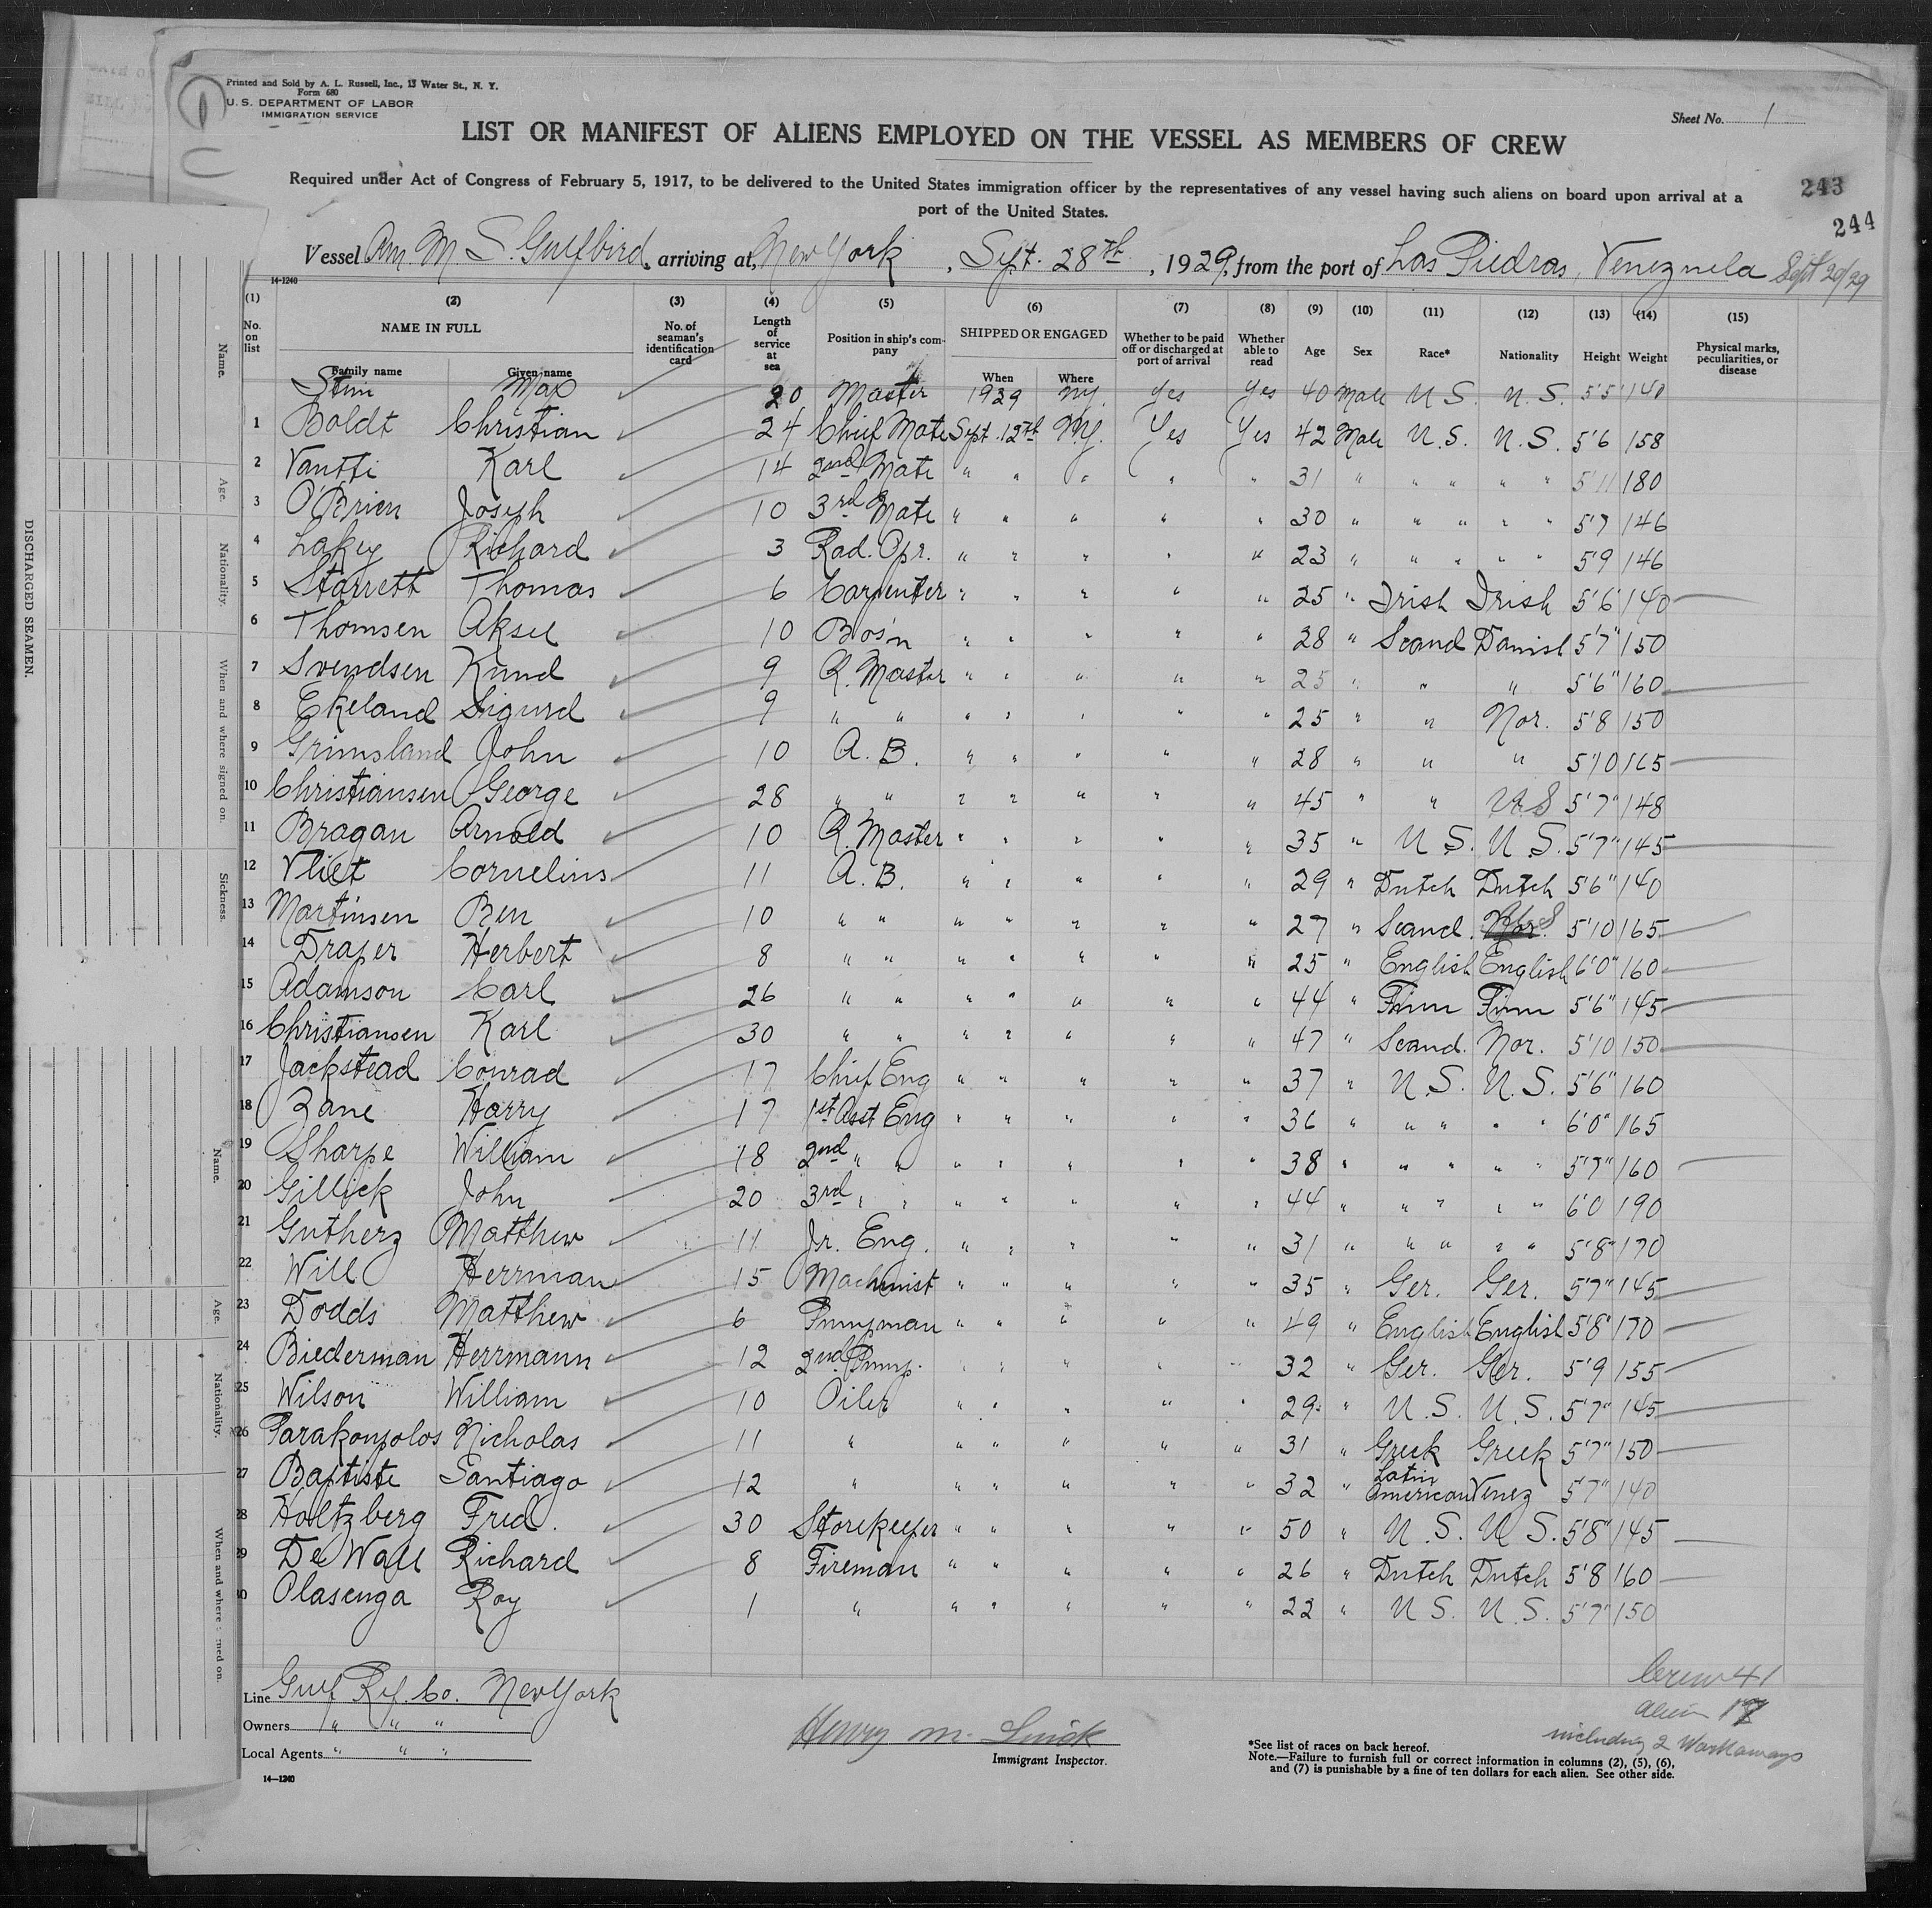 Printed and Sold by A. L. Russell, Inc., 13 Water St., N. Y.
Form 680
U. S. DEPARTMENT OF LABOR
IMMIGRATION SERVICE
Sheet No. 1
LIST OR MANIFEST OF ALIENS EMPLOYED ON THE VESSEL AS MEMBERS OF CREW
Required under Act of Congress of February 5, 1917, to be delivered to the United States immigration officer by the representatives of any vessel having such aliens on board upon arrival at a
port of the United States.
243
244
Vessel Am. M. S. Gulfbird, arriving at, New York, Sept. 28th, 1929, from the port of Las Piedras, Venezuela Sept 20/29
14-1240
(1) (2) (3) (4) (5) (6) (7) (8) (9) (10) (11) (12) (13) (14) (15)
No. on list NAME IN FULL Family name Given name No. of seaman's identification card Length of service at sea Position in ship's company SHIPPED OR ENGAGED When Where Whether to be paid off or discharged at port of arrival Whether able to read Age Sex Race* Nationality Height Weight Physical marks, peculiarities, or disease
Max 20 Master 1929 N.Y. Yes Yes 40 Male U.S. U.S. 5'5 140
1 Boldt Christian 24 Chief Mate Sept. 12th N.Y. Yes Yes 42 Male U.S. U.S. 5'6 158
2 Karl 14 2nd Mate " " " " " 31 " " " " " 5'11 180
3 O'Brien Joseph 10 3rd Mate " " " " " 30 " " " " " 5'7 146
4 Lakey Richard 3 Rad. Opr. " " " " " 23 " " " " " 5'9 146
5 Starrett Thomas 6 Carpenter " " " " " 25 " Irish Irish 5'6" 140
6 Thomsen Aksel 10 Bos'n " " " " " 28 " Scand Danish 5'7" 150
7 Svendsen Knud 9 Q. Master " " " " " 25 " " " 5'6" 160
8 Ekeland Sigurd 9 " " " " " " " 25 " " Nor. 5'8 150
9 Grimsland John 10 A. B. " " " " " 28 " " " 5'10 165
10 Christiansen George 28 " " " " " " " 45 " " U.S 5'7" 148
11 Bragan Arnold 10 Q. Master " " " " " 35 " U.S. U.S. 5'7" 145
12 Vliet Cornelius 11 A. B. " " " " " 29 " Dutch Dutch 5'6" 140
13 Martinsen Ben 10 " " " " " " " 27 " Scand. Nor. U.S 5'10 165
14 Draper Herbert 8 " " " " " " " 25 " English English 6'0" 160
15 Adamson Carl 26 " " " " " " " 44 " Finn Finn 5'6" 145
16 Christiansen Karl 30 " " " " " " " 47 " Scand. Nor. 5'10 150
17 Jackstead Conrad 17 Chief Eng " " " " " 37 " U.S. U.S. 5'6" 160
18 Zane Harry 17 1st Asst Eng " " " " " 36 " " " " " 6'0" 165
19 Sharpe William 18 2nd " " " " " " " 38 " " " " " 5'7" 160
20 Gillick John 20 3rd " " " " " " " 44 " " " " " 6'0 190
21 Gutherz Matthew 11 Jr. Eng. " " " " " 31 " " " " " 5'8" 170
22 Will Herrman 15 Machinist " " " " " 35 " Ger. Ger. 5'7" 145
23 Dodds Matthew 6 Pumpman " " " " " 49 " English English 5'8" 170
24 Biederman Herrmann 12 2nd Pump. " " " " " 32 " Ger. Ger. 5'9 155
25 Wilson William 10 Oiler " " " " " 29 " U.S. U.S. 5'7" 145
26 Nicholas 11 " " " " " " 31 " Greek Greek 5'7" 150
27 Baptiste Santiago 12 " " " " " " 32 " Latin American Venez 5'7" 140
28 Holtzberg Fred. 30 Storekeeper " " " " " 50 " U.S. U.S. 5'8" 145
29 De Wall Richard 8 Fireman " " " " " 26 " Dutch Dutch 5'8 160
30 Olasenga Roy 1 " " " " " " 22 " U.S. U.S. 5'7" 150
Line Gulf Ref. Co. New York
Owners " " "
Local Agents " " "
14-1240
Henry M.
Immigrant Inspector.
*See list of races on back hereof.
Note.—Failure to furnish full or correct information in columns (2), (5), (6),
and (7) is punishable by a fine of ten dollars for each alien. See other side.
Crew 41
Alien
including 2 Workaways
DISCHARGED SEAMEN.
Name.
Age.
Nationality.
When and where signed on.
Sickness.
Name.
Age.
Nationality.
When and where signed on.